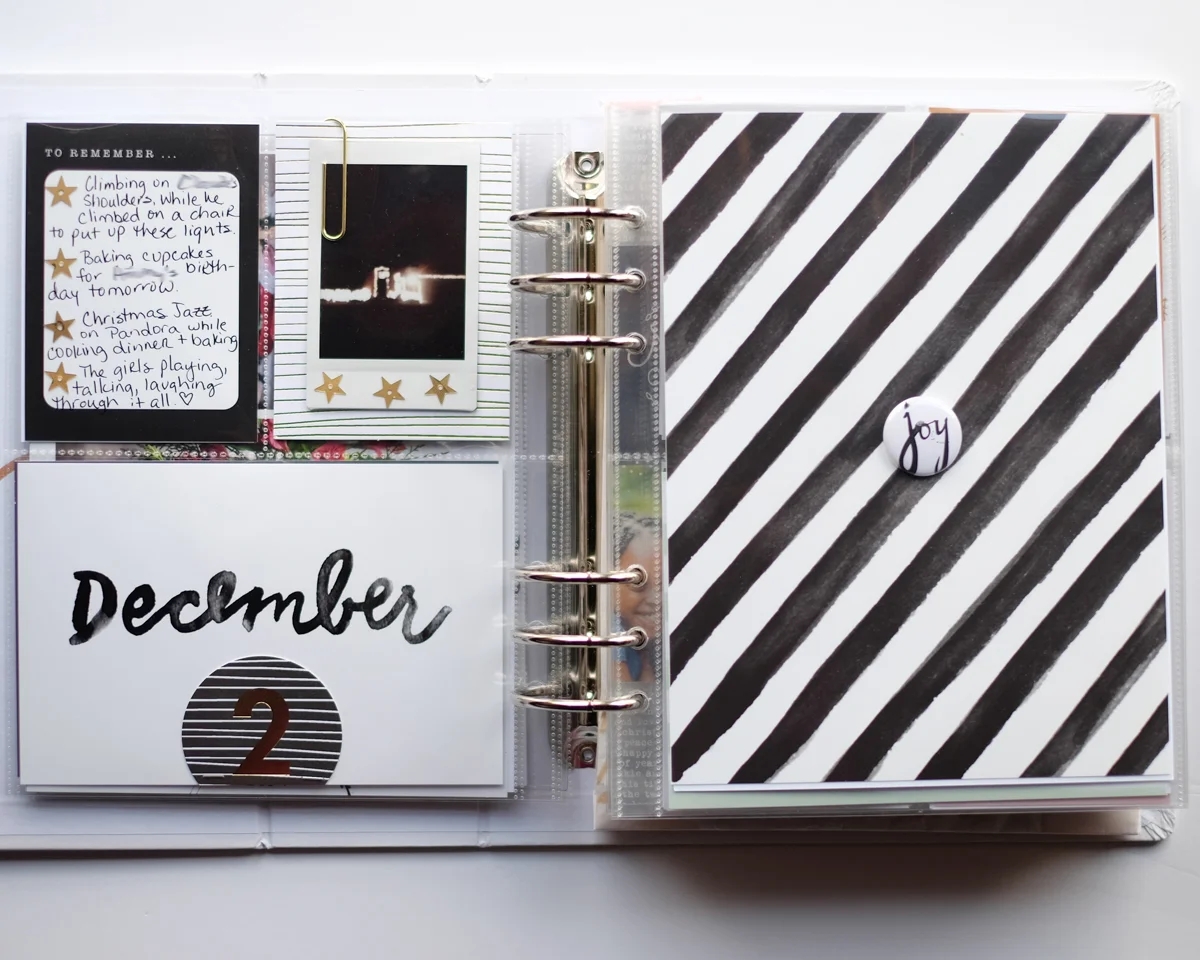 TO REMEMBER ...
Climbing on
shoulders, while he
climbed on a chair
to put up these lights.
Baking cupcakes
for birth-
day tomorrow.
Christmas Jazz
on Pandora while
cooking dinner + baking
The girls playing,
talking, laughing
through it all. ♡
December
2
joy